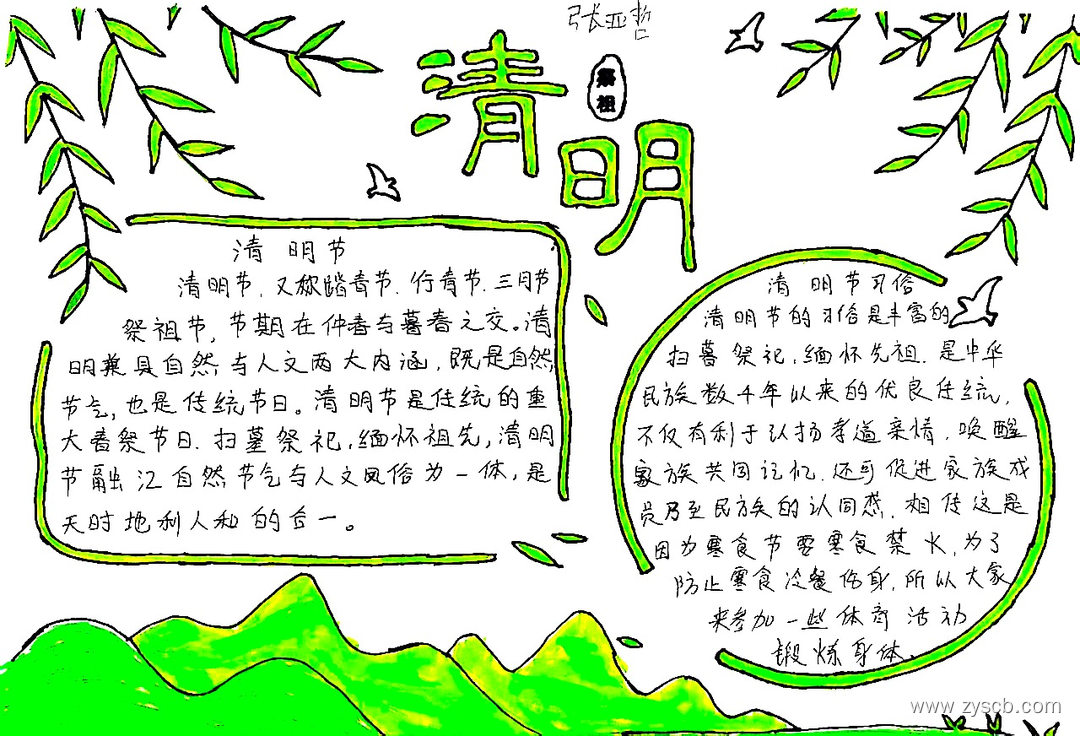 张亚哲
清明
祭祖
清明节
清明节,又称踏青节.行青节.三月节
祭祖节,节期在仲春与暮春之交。清
明兼具自然与人文两大内涵,既是自然
节气,也是传统节日。清明节是传统的重
大春祭节日.扫墓祭祀,缅怀祖先,清明
节融汇自然节气与人文风俗为一体,是
天时地利人和的合一。
清明节习俗
清明节的习俗是丰富的
扫暮祭祀,缅怀先祖.是中华
民族数千年以来的优良传统,
不仅有利于弘扬孝道亲情,唤醒
家族共同记忆.还可促进家族成
员乃至民族的认同感.相传这是
因为寒食节要寒食禁火,为了
防止寒食冷餐伤身,所以大家
来参加一些体育活动
锻炼身体.
www.zyscb.com